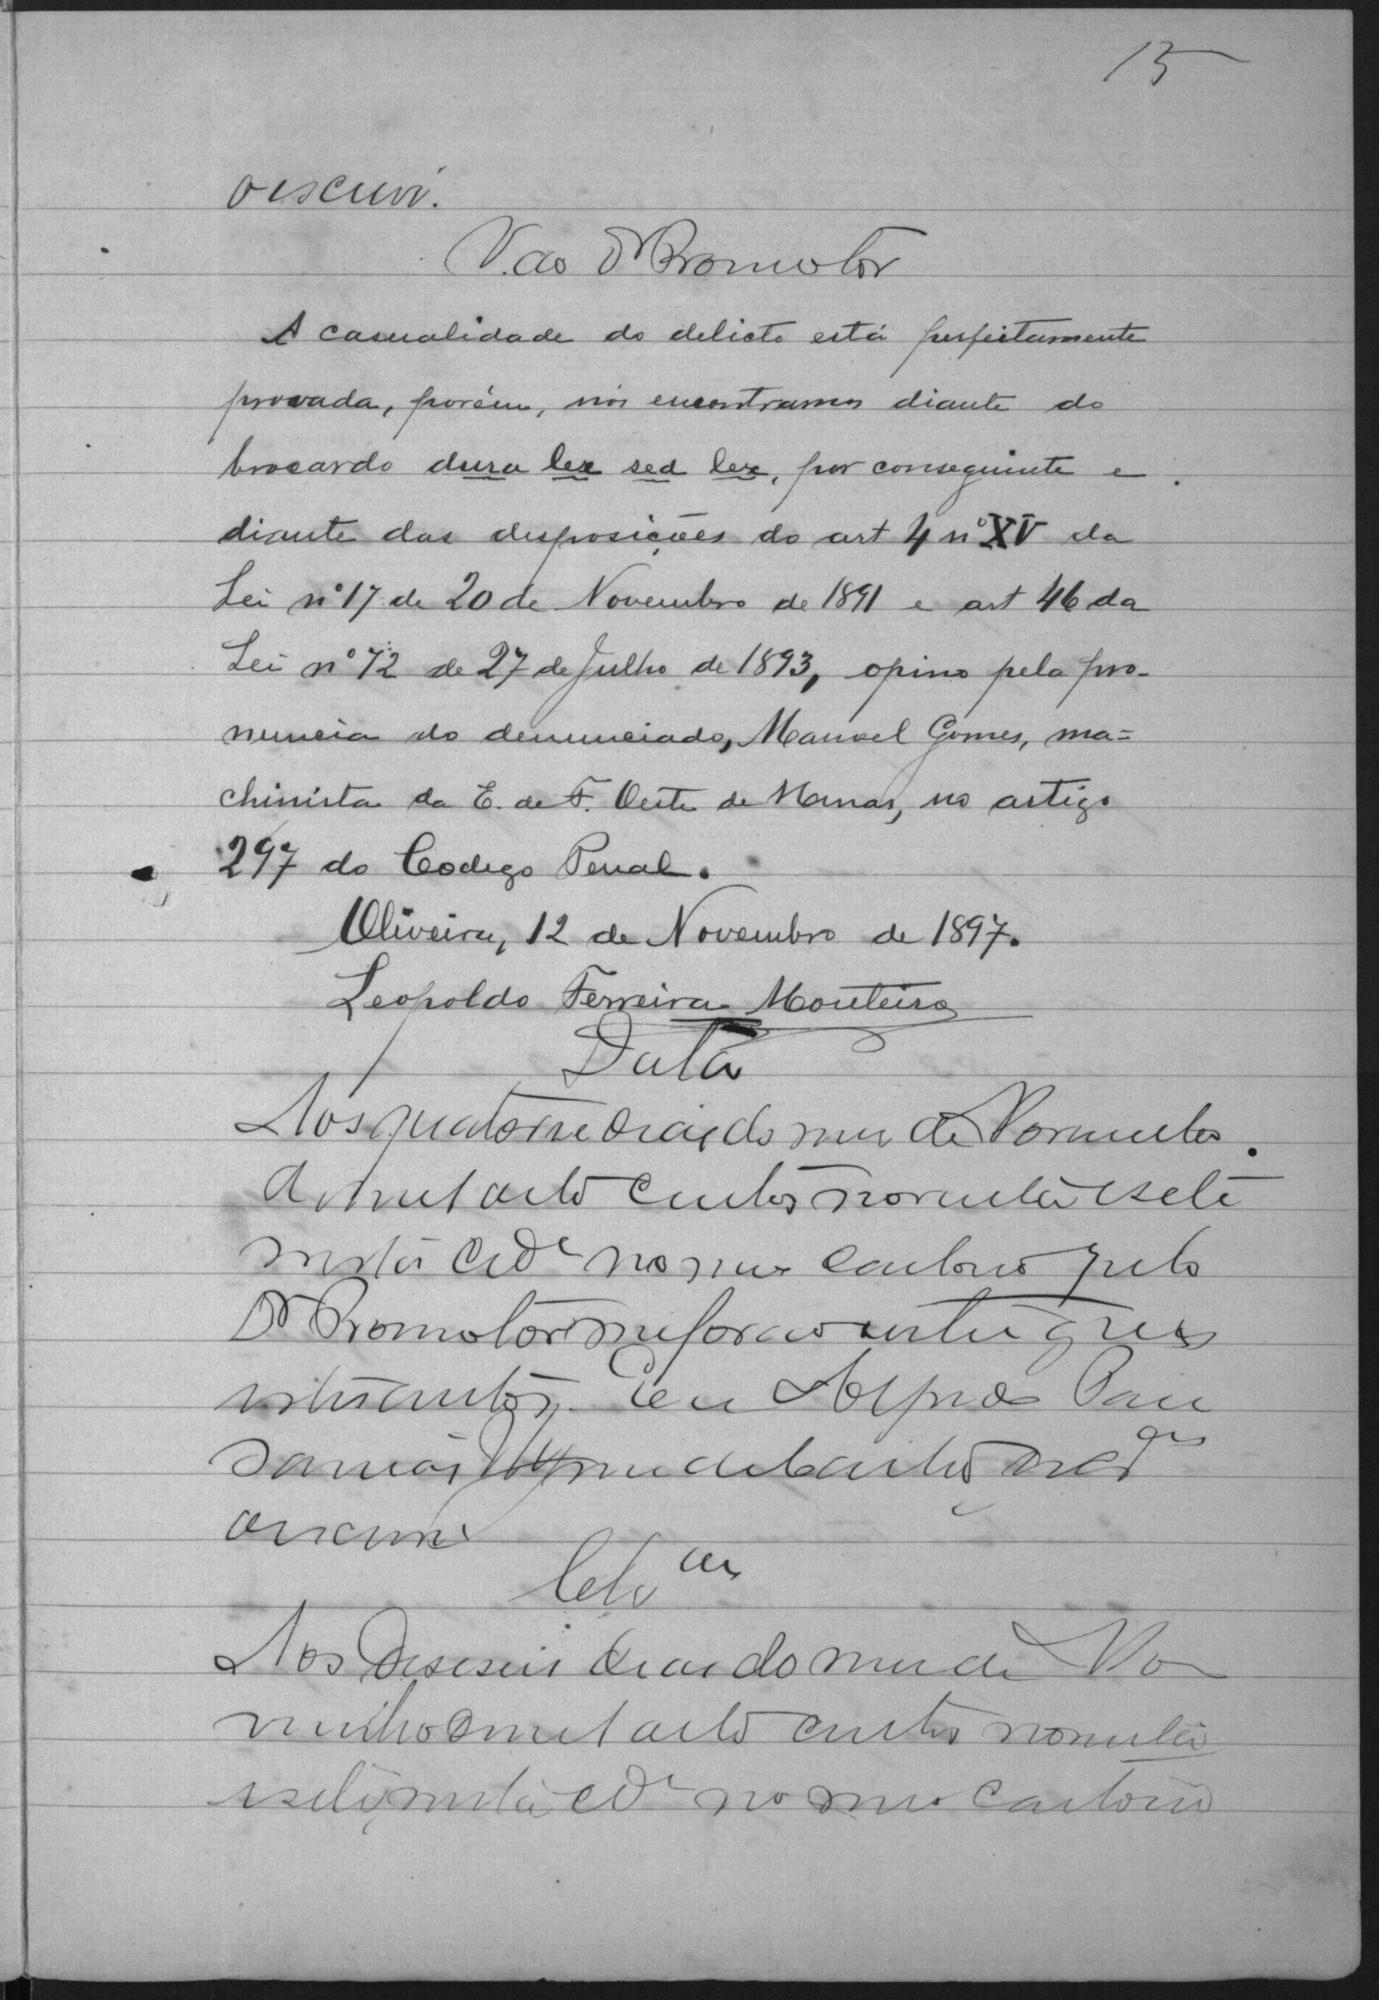 15
o escrevi.
V. ao Dr Promotor
A casualidade do delicto está perfeitamente
provada, porém, nós encontramos diante do
brocardo dura lex sed lex, por conseguinte e
diante das disposições do art 4 nº XV da
Lei nº 17 de 20 de Novembro de 1891 e art 46 da
Lei nº 72 de 27 de Julho de 1893, opino pela pro-
nuncia do denunciado, Manoel Gomes, ma=
chinista da E. de F. Oeste de Minas, no artigo
297 do Codigo Penal.
Oliveira, 12 de Novembro de 1897.
Leopoldo Ferreira Monteiro
Data
Aos quatorze dias do mes de Novembro
de mil oito centos noventa e sete
nesta cide no meu cartorio pelo
Dr Promotor me forao entregues
estes autos. Eu Alfredo
o escrevi
Clsos
Aos deseseis dias do mes de No
vembro de mil oito centos noventa
e sete, nesta cide no meu cartorio